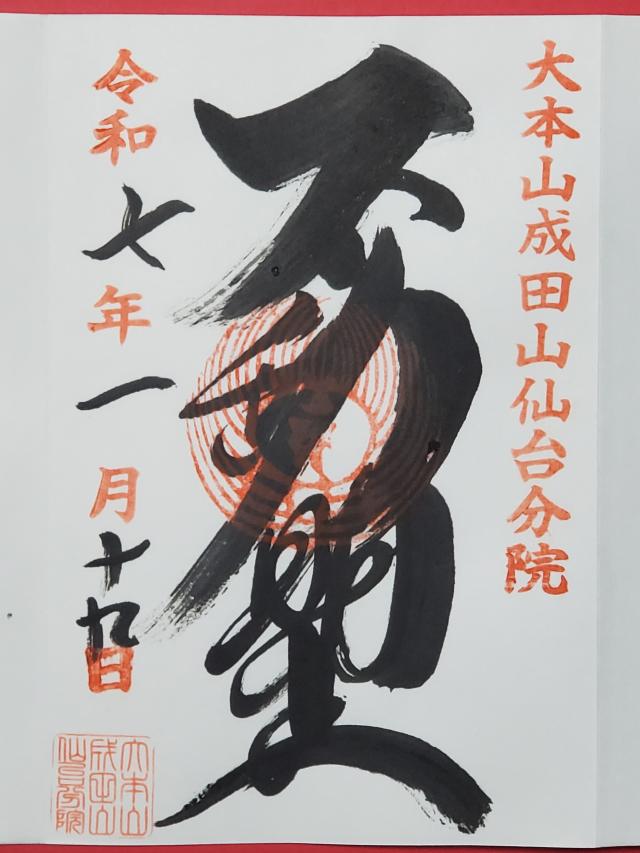 大本山成田山仙台分院
不動聖
令和七年一月十九日
大本山
成田山
仙台分院